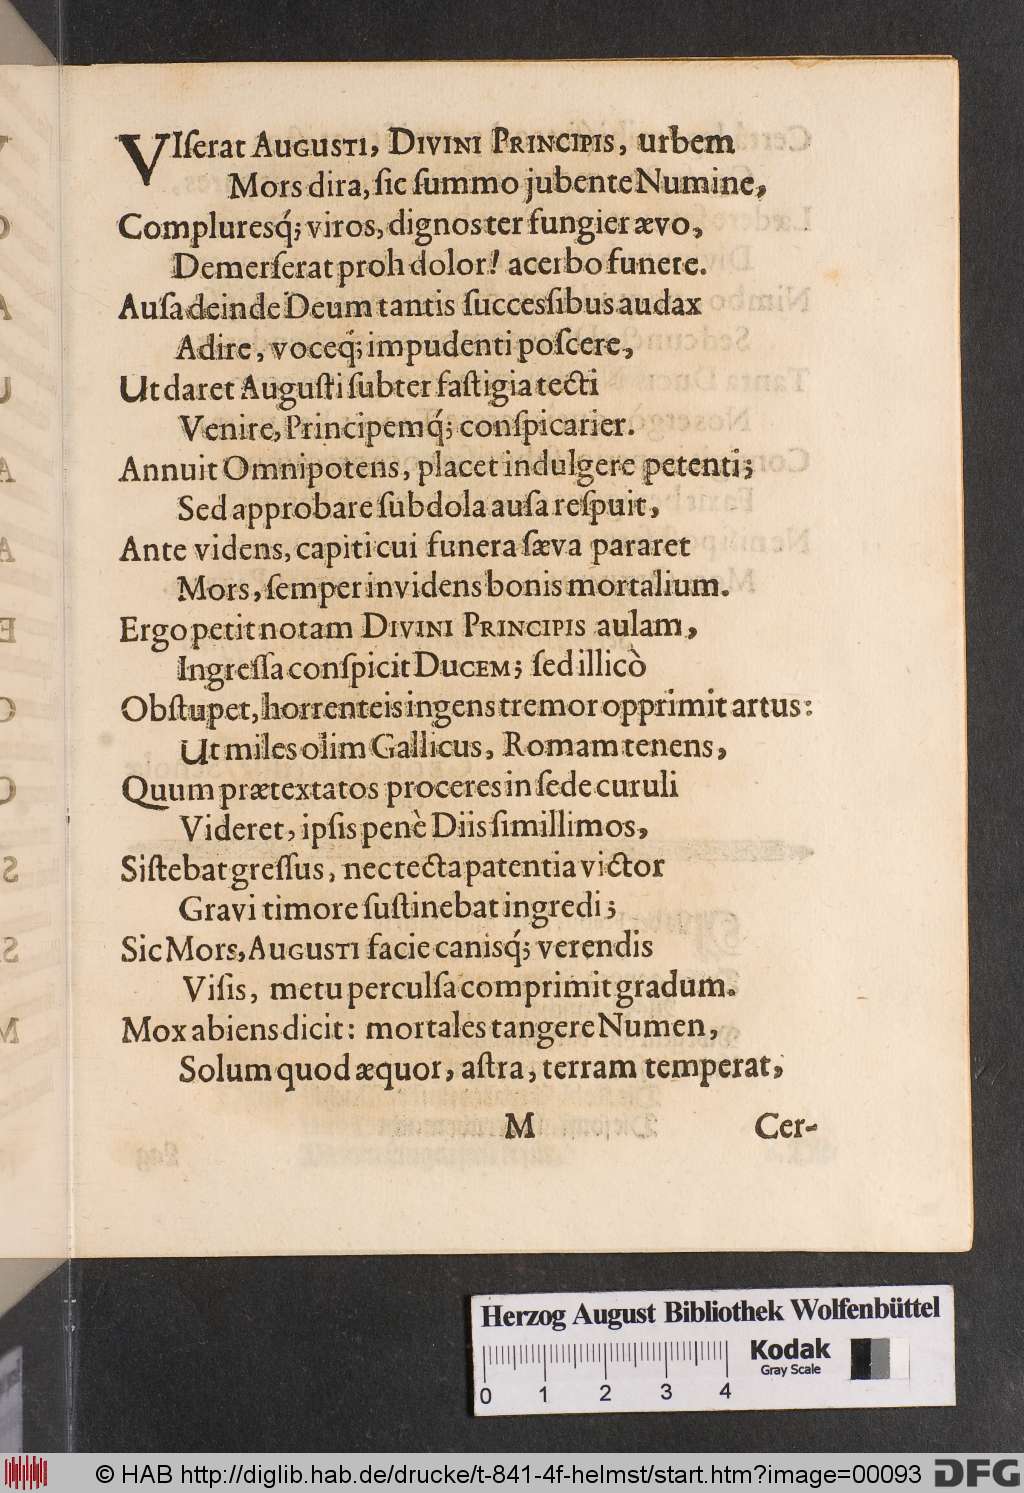 VIſerat AUGUSTI, DIVINI PRINCIPIS, urbem
Mors dira, ſic ſummo jubente Numine,
Compluresq́; viros, dignos ter fungier ævo,
Demerſerat proh dolor! acerbo funere.
Auſa deinde Deum tantis ſucceſſibus audax
Adire, voceq́; impudenti poſcere,
Ut daret Auguſti ſubter faſtigia tecti
Venire, Principemq́; conſpicarier.
Annuit Omnipotens, placet indulgere petenti;
Sed approbare ſubdola auſa reſpuit,
Ante videns, capiti cui funera ſæva pararet
Mors, ſemper invidens bonis mortalium.
Ergo petit notam DIVINI PRINCIPIS aulam,
Ingreſſa conſpicit DUCEM; ſed illicò
Obſtupet, horrenteis ingens tremor opprimit artus:
Ut miles olim Gallicus, Romam tenens,
Quum prætextatos proceres in ſede curuli
Videret, ipſis penè Diis ſimillimos,
Siſtebat greſſus, nec tecta patentia victor
Gravi timore ſuſtinebat ingredi;
Sic Mors, AUGUSTI facie canisq́; verendis
Viſis, metu perculſa comprimit gradum.
Mox abiens dicit: mortales tangere Numen,
Solum quod æquor, aſtra, terram temperat,
M Cer-
Herzog August Bibliothek Wolfenbüttel
Kodak
Gray Scale
0 1 2 3 4
© HAB http://diglib.hab.de/drucke/t-841-4f-helmst/start.htm?image=00093 DFG